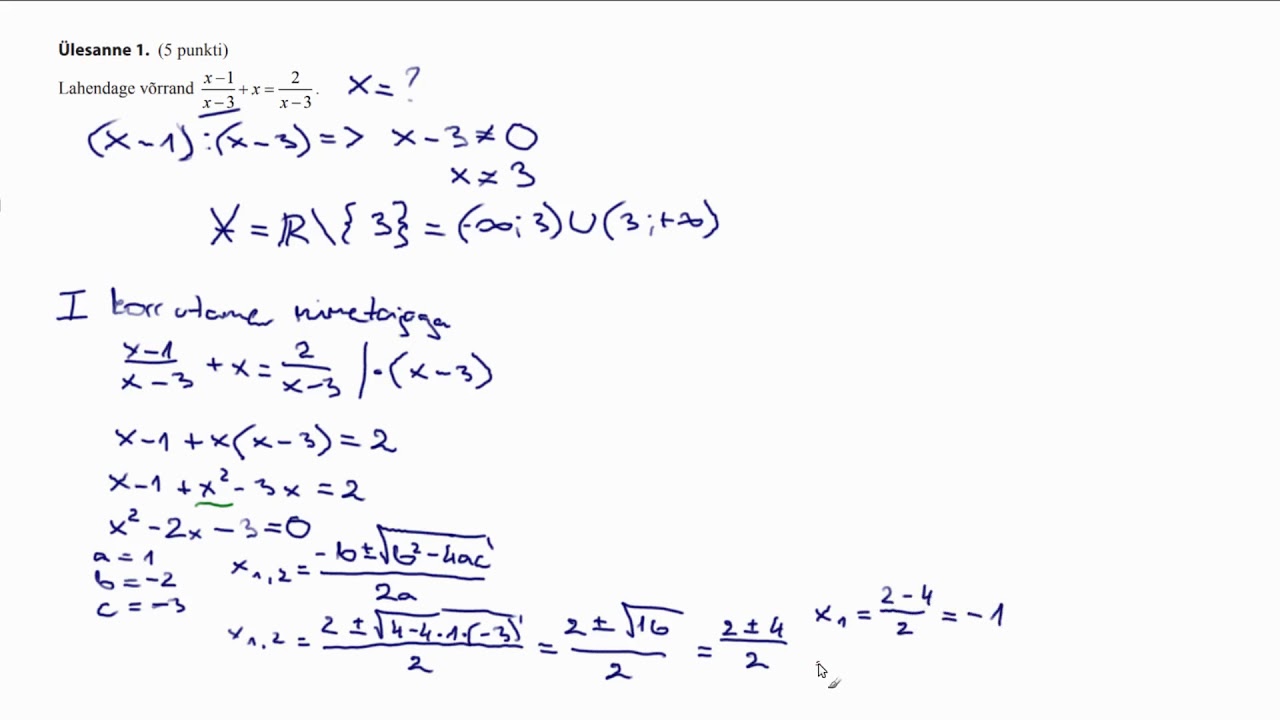 Ülesanne 1. (5 punkti)
Lahendage võrrand (x−1)/(x−3) + x = 2/(x−3). x = ?
(x−1):(x−3) => x−3≠0
x≠3
X = ℝ\{3} = (-∞;3)∪(3;+∞)
I korrutame nimetajaga
(x−1)/(x−3) + x = 2/(x−3) |·(x−3)
x−1+x(x−3)=2
x−1+x²−3x=2
x²−2x−3=0
a=1
b=−2
c=−3
x₁,₂ = (−b±√(b²−4ac))/(2a)
x₁,₂ = (2±√(4−4·1·(−3)))/2 = (2±√16)/2 = (2±4)/2 x₁ = (2−4)/2 = −1